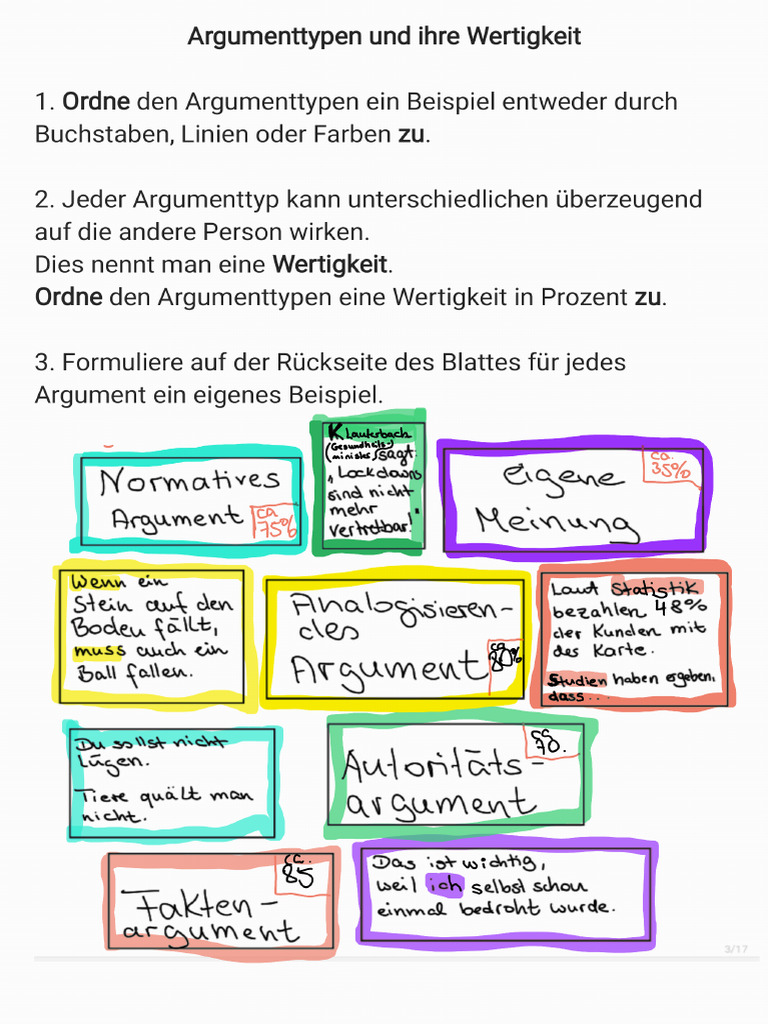 Argumenttypen und ihre Wertigkeit
1. Ordne den Argumenttypen ein Beispiel entweder durch
Buchstaben, Linien oder Farben zu.
2. Jeder Argumenttyp kann unterschiedlichen überzeugend
auf die andere Person wirken.
Dies nennt man eine Wertigkeit.
Ordne den Argumenttypen eine Wertigkeit in Prozent zu.
3. Formuliere auf der Rückseite des Blattes für jedes
Argument ein eigenes Beispiel.
Normatives
Argument
ca.
75%
K Lauterbach
(Gesundheits-
minister) sagt:
"Lockdowns
sind nicht
mehr
vertretbar!"
eigene
Meinung
ca.
35%
Wenn ein
Stein auf den
Boden fällt,
muss auch ein
Ball fallen.
Analogisieren-
des
Argument
ca.
80%
Laut Statistik
bezahlen 48%
der Kunden mit
des Karte.
Studien haben ergeben,
dass...
Du sollst nicht
Lügen.
Tiere quält man
nicht.
Autoritäts-
argument
ca.
70.
Fakten-
argument
ca.
85
Das ist wichtig,
weil ich selbst schon
einmal bedroht wurde.
3/17